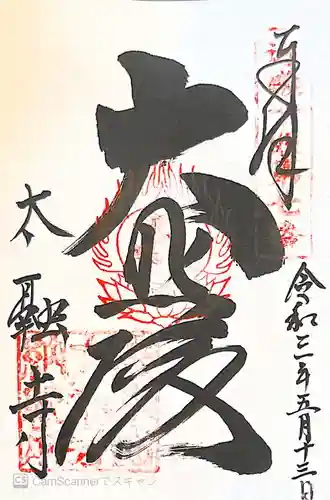 奉拝
大悲殿
令和三年五月十三日
太融寺
CS CamScannerでスキャン